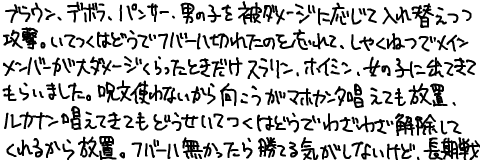 ブラウン、デボラ、パンサー、男の子を被ダメージに応じて入れ替えつつ
攻撃。いてつくはどうでフバーハ切れたのを忘れて、しゃくねつでメイン
メンバーが大ダメージくらったときだけスラリン、ホイミン、女の子に出てきて
もらいました。呪文使わないから向こうがマホカンタ唱えても放置、
ルカナン唱えてきてもどうせいてつくはどうでわざわざ解除して
くれるから放置。フバーハ無かったら勝てる気がしないけど、長期戦